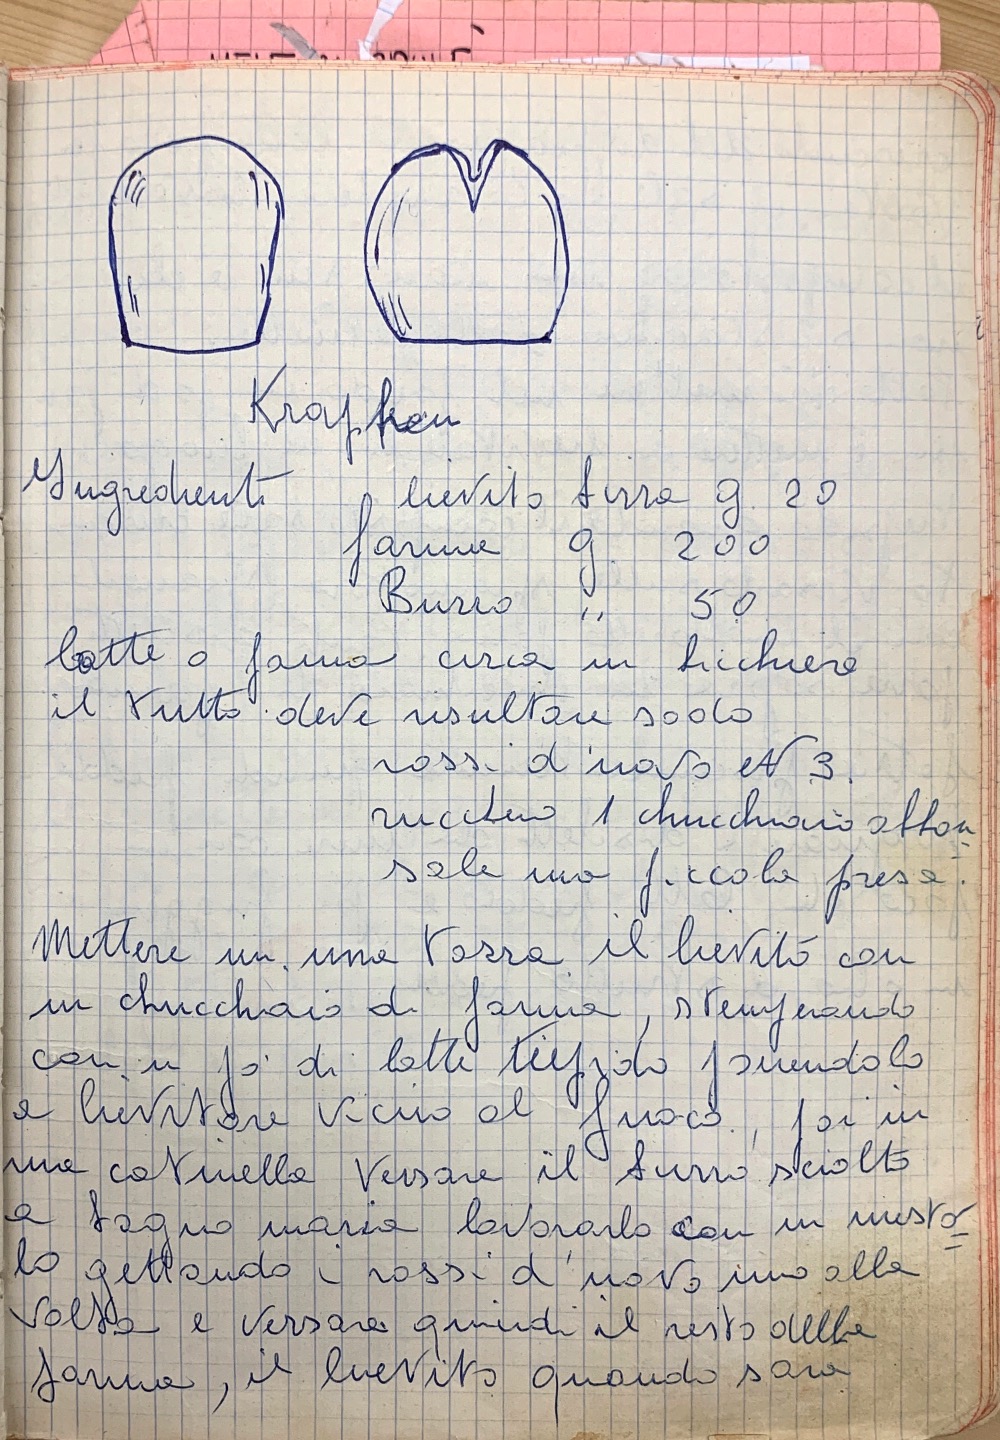 Krapfen
Ingredienti lievito birra g. 20
farina g. 200
Burro " 50
latte o panna circa un bicchiere
il tutto deve risultare sodo
rossi d'uovo N 3.
zucchero 1 chucchiaio abbon
sale una piccola presa.
Mettere in una tazza il lievito con
un chucchiaio di farina, stemperando
con un po' di latte tiepido ponendolo
a lievitare vicino al fuoco, poi in
una catinella versare il burro sciolto
a bagno maria lavorarlo con un mesto=
lo gettando i rossi d'uovo uno alla
volta e versare quindi il resto della
farina, il lievito quando sara